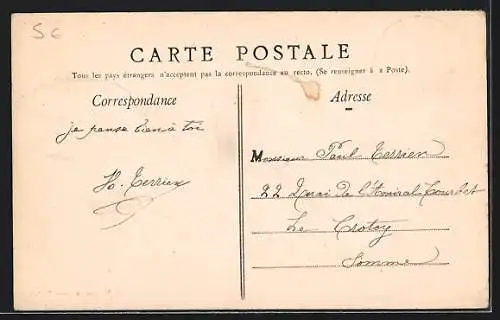 56
CARTE POSTALE
Tous les pays étrangers n'acceptent pas la correspondance au recto. (Se renseigner à a Poste).
Correspondance
Adresse
je pense bien à toi
H. Terrien
Monsieur Paul Terrien
22 Quai de l'Amiral Courbet
Le Crotoy
Somme